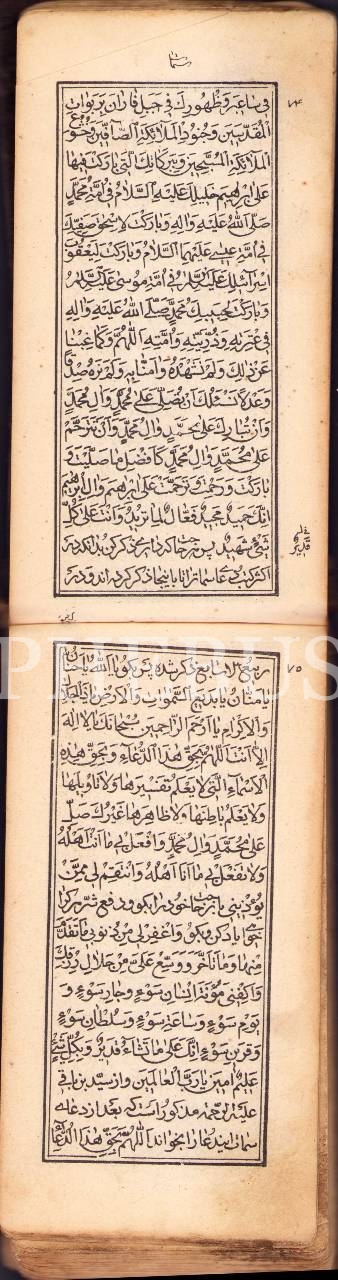 سمات
٧٤
فی ساعیر وظهورك فی جبل فاران بربوات
المقدسین وجنود الملائکة الصافین وخشوع
الملائکة المسبحین وببرکاتك التی بارکت فیها
علی ابرهیم خلیلك علیه السلام فی امة محمد
صلی الله علیه واله وبارکت لاسحق صفیك
فی امة عیسی علیهما السلام وبارکت لیعقوب
اسرائیلك علیه السلام فی امة موسی علیه السلام
وبارکت لحبیبك محمد صلی الله علیه واله
فی عترته وذریته وامته اللهم وکما غبنا
عن ذلك ولم نشهده وامنا به ولم نره صدقا
وعدلا نسئلك ان تصلی علی محمد وال محمد
وان تبارك علی محمد وال محمد وان ترحم
علی محمد وال محمد کافضل ما صلیت و
بارکت ورحمت وترحمت علی ابرهیم وال ابرهیم
انك حمید مجید فعال لما ترید وانت علی کل
شیء شهید پس هر حاجت که داری ذکر کن بدانکه در
اکثر کتب دعای سمات را تا باینجا ذکر کرده اند و در
قدیر
٧٥
ربیع الاسابیع ذکر شده پس بکو یا الله یا حنان
یا منان یا بدیع السموات والارض یا ذا الجلال
والاکرام یا ارحم الراحمین سبحانك لا اله
الا انت اللهم بحق هذا الدعاء وبحق هذه
الاسماء التی لا یعلم تفسیرها ولا تاویلها
ولا یعلم باطنها ولا ظاهرها غیرك صل
علی محمد وال محمد وافعل بی ما انت اهله
ولا تفعل بی ما انا اهله وانتقم لی ممن
یؤذینی پس حاجت خود را بکو و دفع شر هر که را
خواهی یاد کن و بکو واغفر لی من ذنوبی ما تقدم
منها وما تاخر ووسع علی من حلال رزقك
واکفنی مؤنة انسان سوء وجار سوء و
یوم سوء وساعة سوء وسلطان سوء
وقرین سوء انك علی ما تشاء قدیر وبکل شیء
علیم امین یا رب العالمین واز سید بن باقی
علیه الرحمة مذکور است که بعد از دعاء
سمات این دعا را بخواند اللهم بحق هذا الدعاء